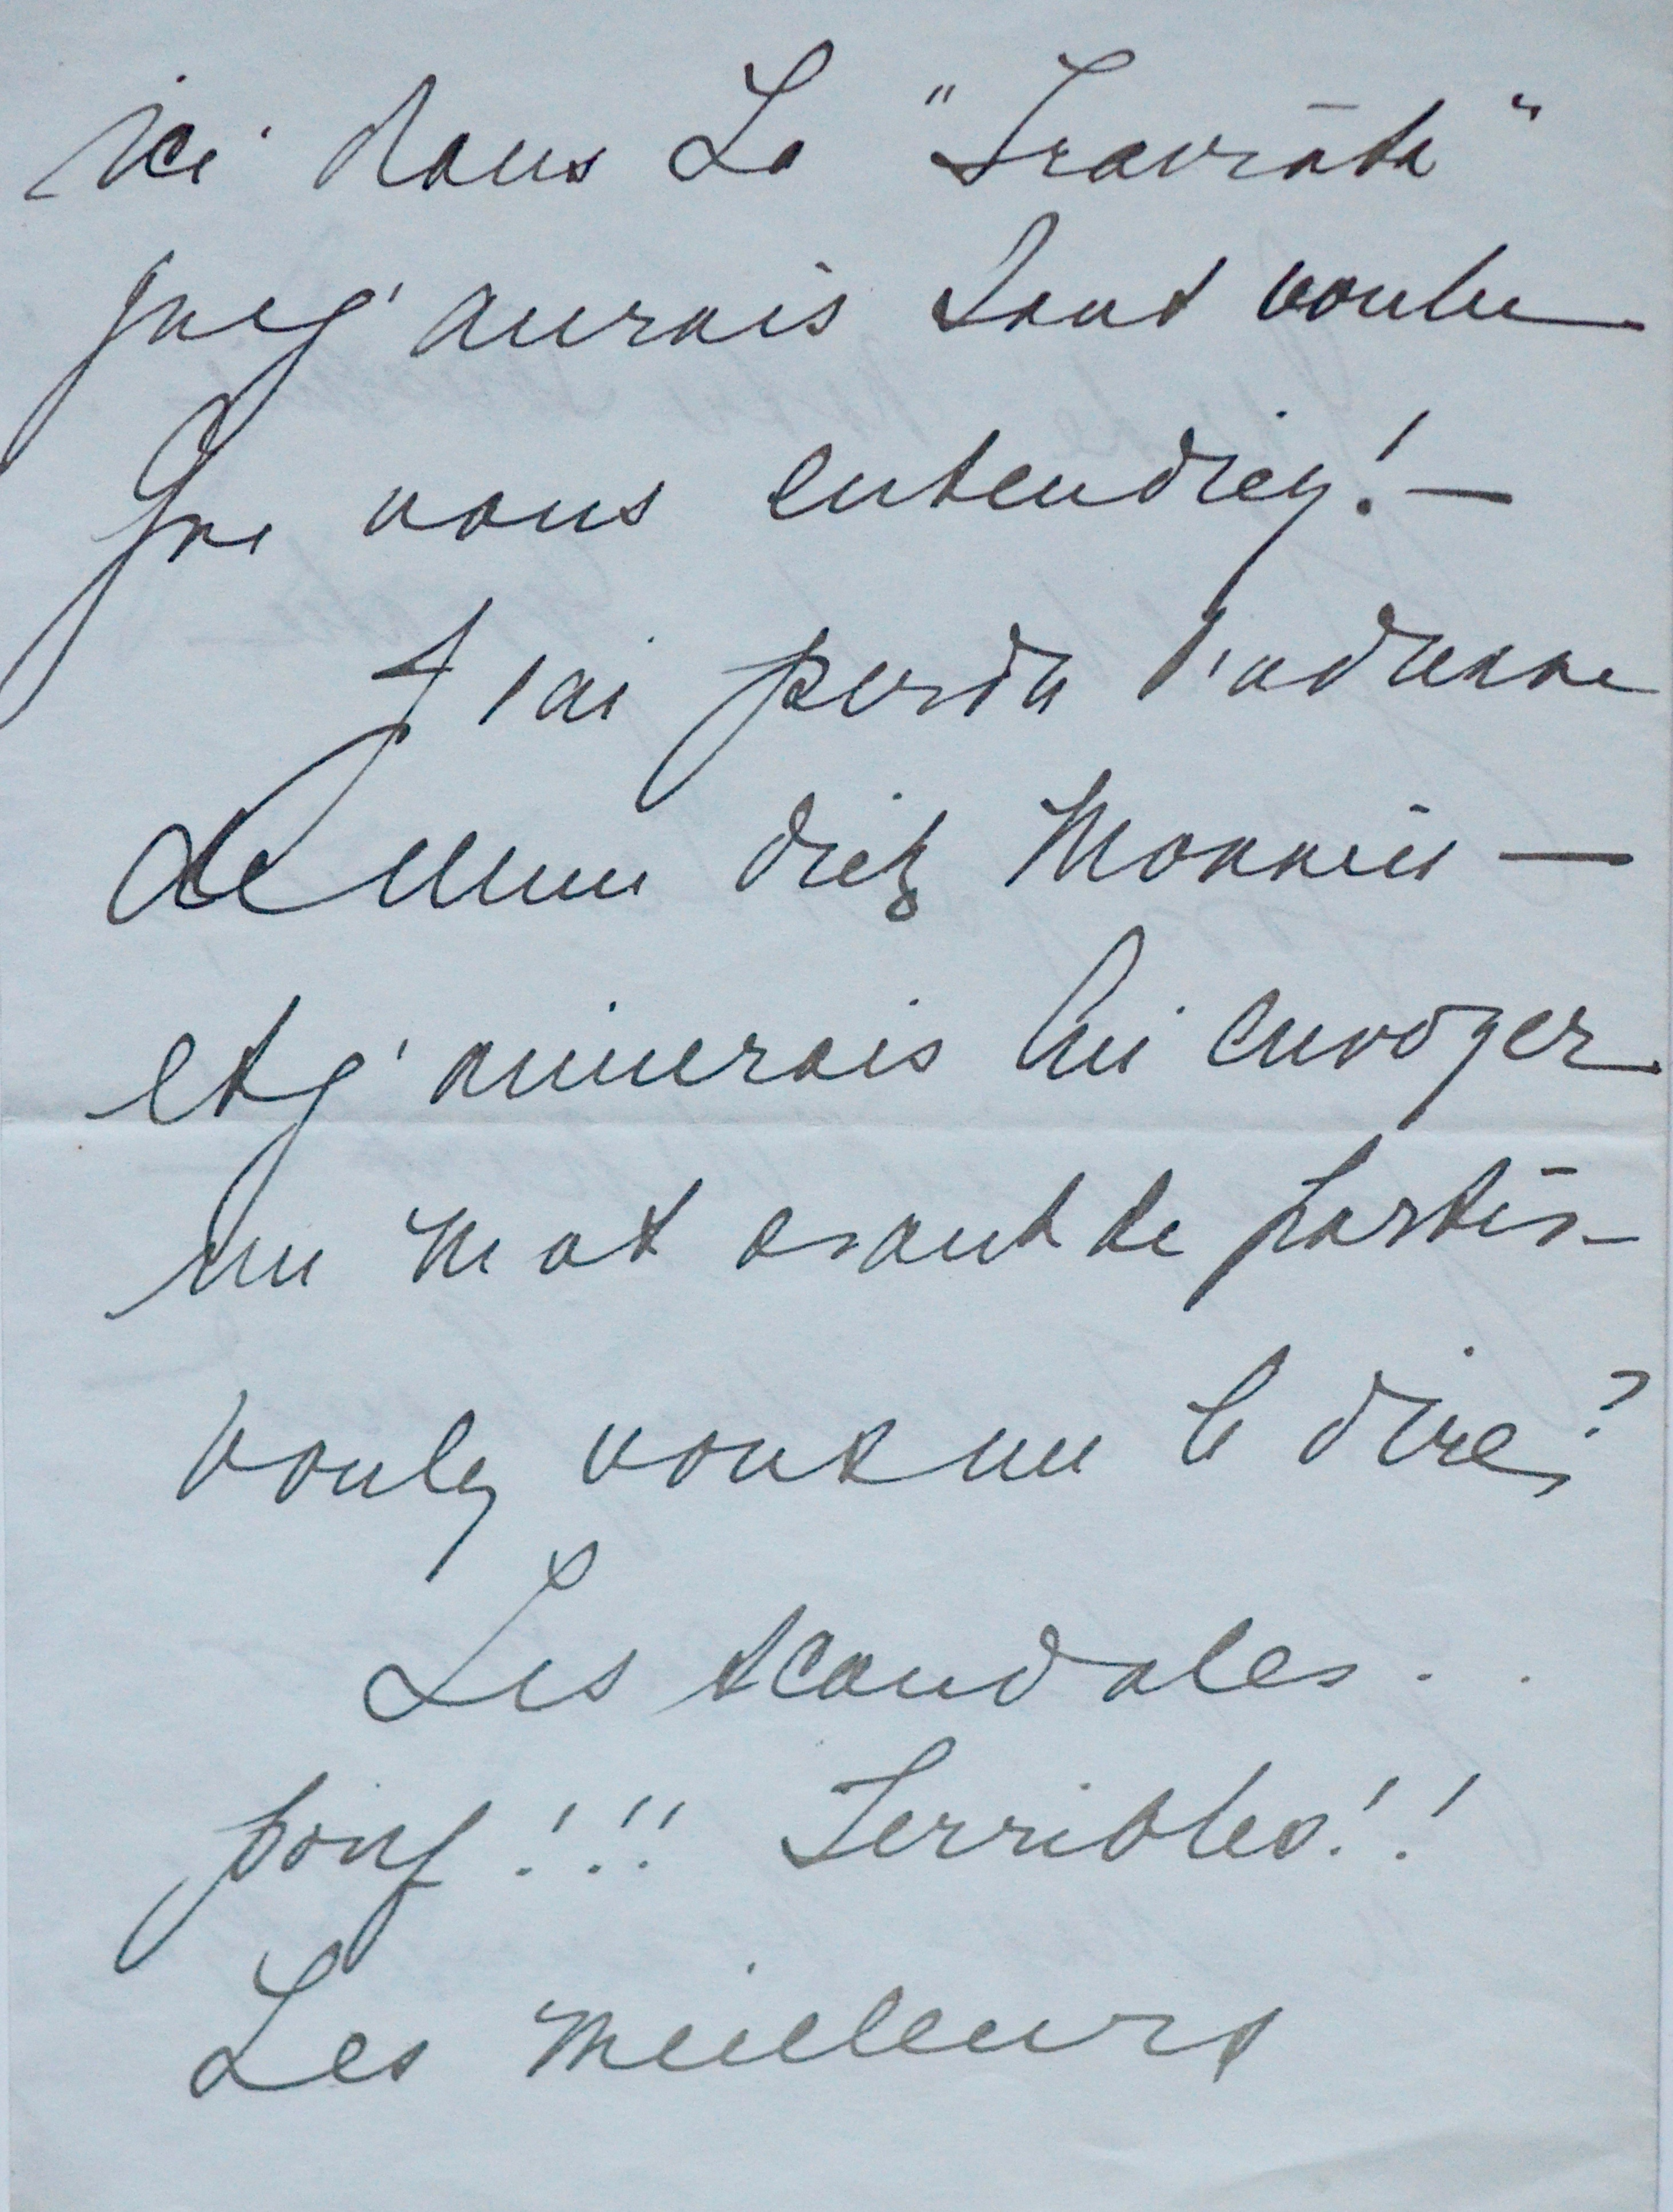 ici dans La "Traviata"
que j'aurais tant voulu
que vous entendiez! —
J'ai perdu l'adresse
de Mme Dietz Monnin —
et j'aimerais lui envoyer
un mot avant de partir —
voulez vous me le dire?
Les scandales . .
pouf!!! Terribles!!
Les meilleurs